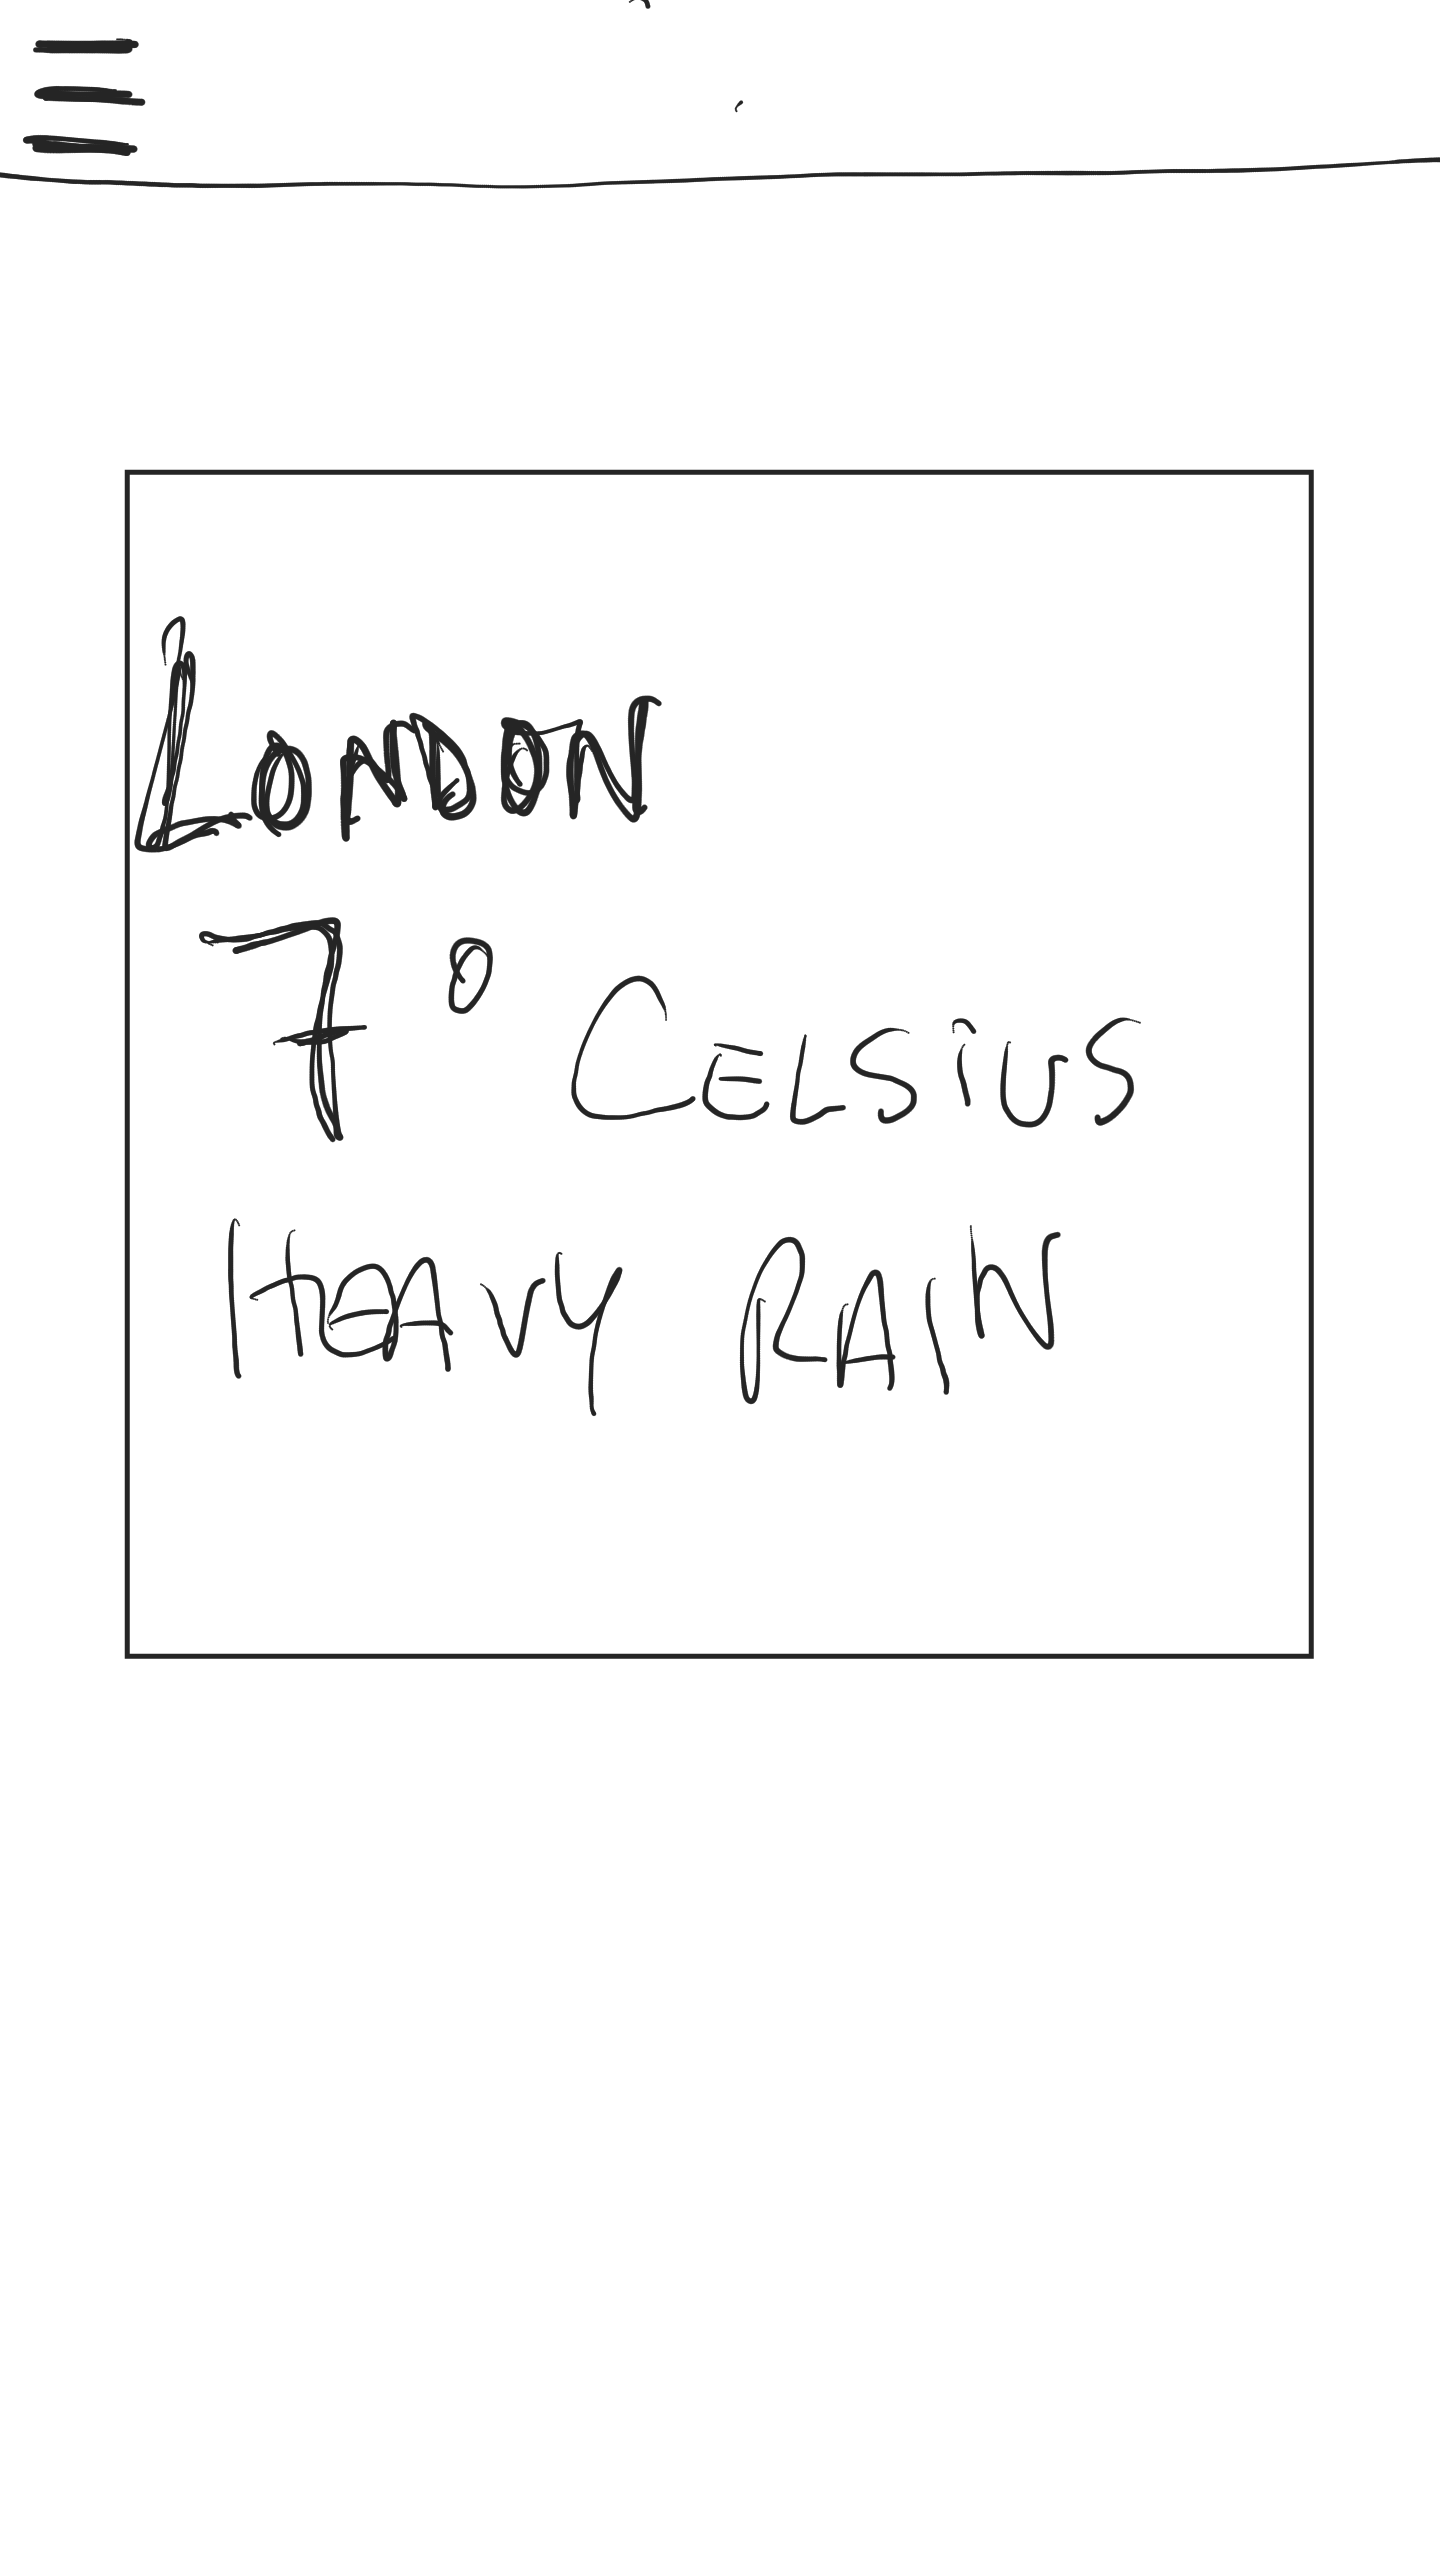 LONDON
7° CELSIUS
HEAVY RAIN